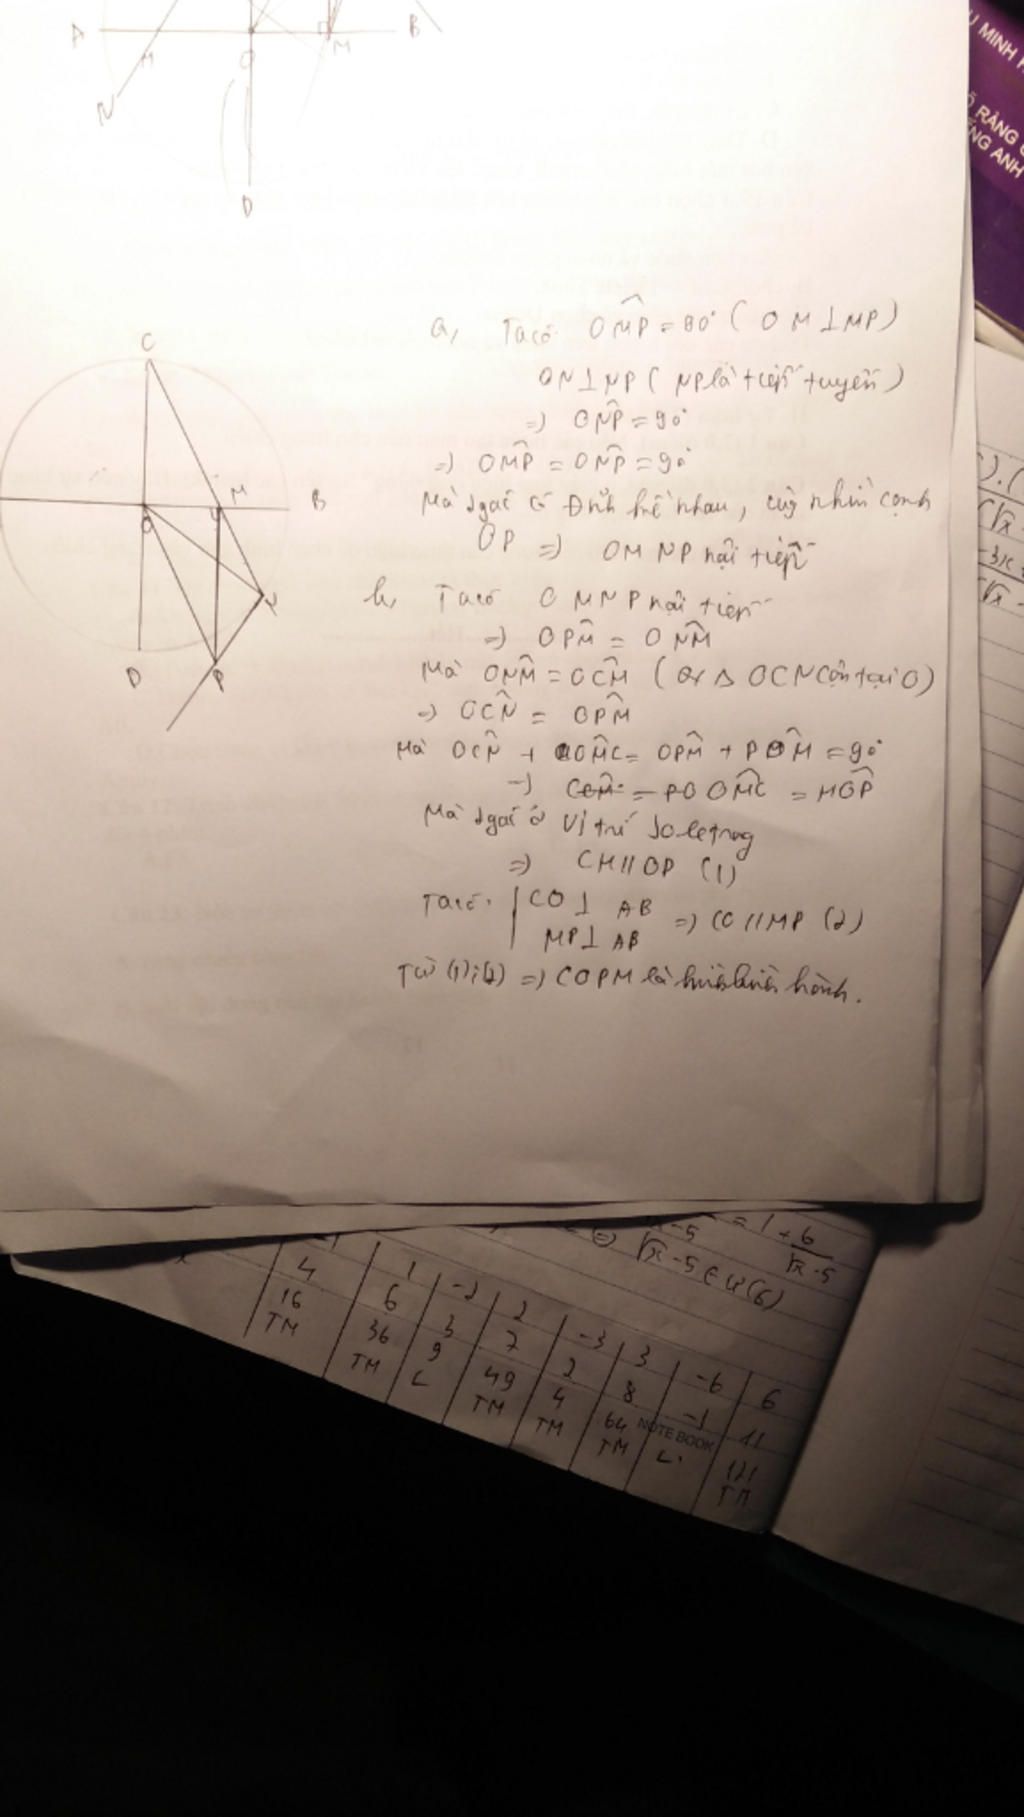 A
M
O
M
B
N
D
U MINH
Õ RÀNG
ẾNG ANH
C
M
B
O
D
P
a, Ta có OMP = 90° ( OM ⊥ MP)
ON ⊥ NP ( NP là tiếp tuyến )
=> ONP = 90°
=> OMP = ONP = 90°
Mà 2 góc có Đỉnh kề nhau, cùng nhìn cạnh
OP => OMNP nội tiếp
b, Ta có OMNP nội tiếp
=> OPM = ONM
Mà ONM = OCM ( Δ OCN cân tại O)
=> OCN = OPM
Mà OCN + OMC = OPM + POM = 90°
=> OMC = MOP
Mà 2 góc ở vị trí so le trong
=> CM // OP (1)
Ta có: CO ⊥ AB => CO // MP (2)
MP ⊥ AB
Từ (1);(2) => COPM là hình bình hành.
= 1 + 6
√x - 5
√x - 5 ∈ Ư(6)
1 -2 2 -3 3 -6 6
4 6 3 7 2 8 -1 11
16 36 9 49 4 64 121
TM TM L TM TM TM L TM
NOTE BOOK